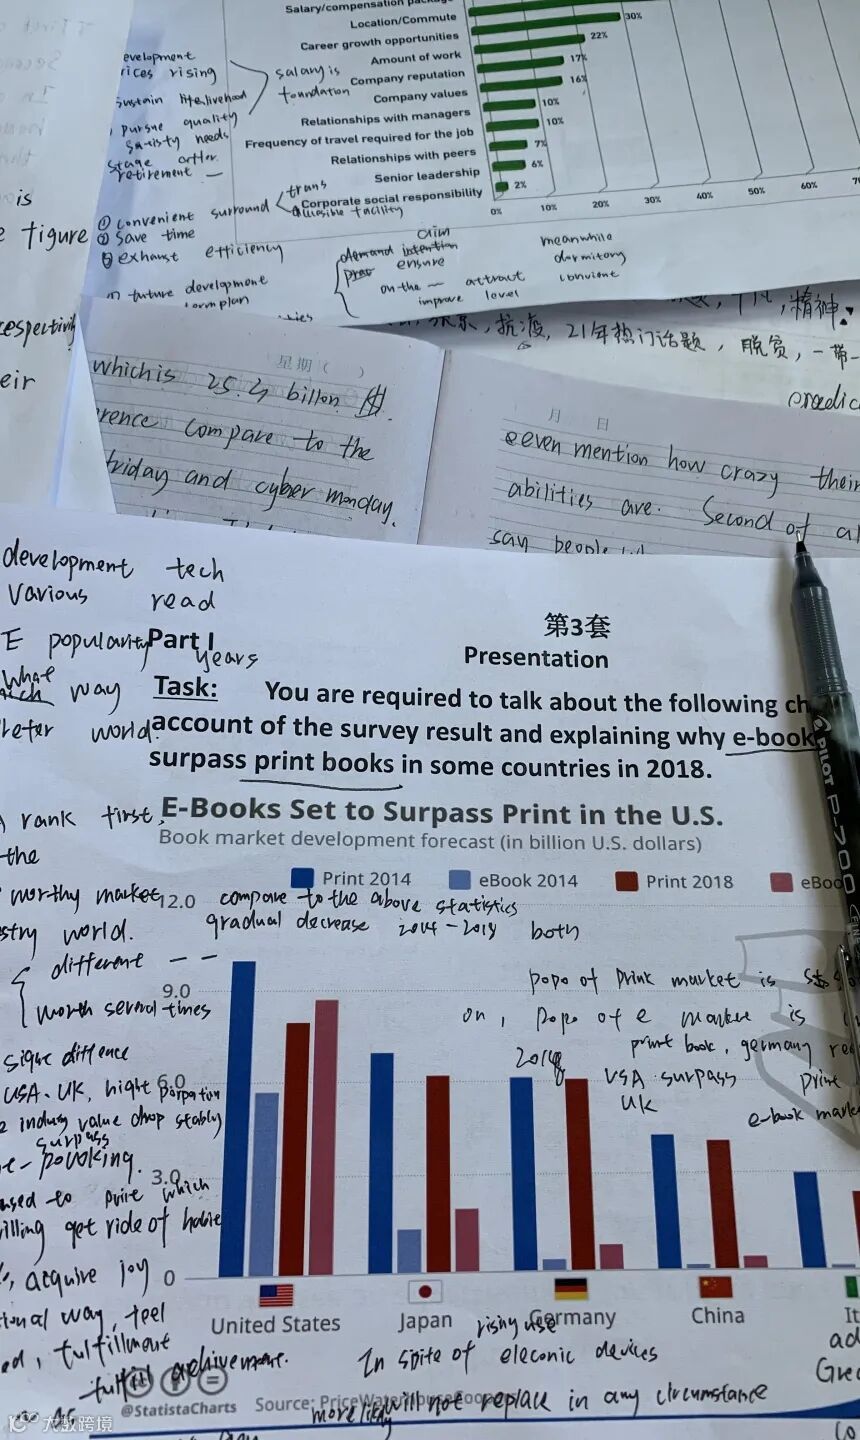 Salary/compensation
Location/Commute 30%
Career growth opportunities 22%
Amount of work 17%
Company reputation 16%
Company values 10%
Relationships with managers 10%
Frequency of travel required for the job 7%
Relationships with peers 6%
Senior leadership 2%
Corporate social responsibility
0% 10% 20% 30% 40% 50% 60%
evelopment
rices rising
sustain life,livelihood
pursue quality
satisty needs
stage after
retirement —
salary is
foundation
① convenient surround
trans
facility
② save time
③ exhaust efficiency
① future development
aim
demand intention
ensure
on the — attract
improve level
meanwhile
dormitory
convient
is
figure
respectivity
eir
抗疫, 21年热门话题, 脱贫, 一带一
精神
星期( )
which is 25.4 billon
rence compare to the
friday and cyber monday.
月 日
even mention how crazy their
abilities are. Second of al
say people
development tech
various read
E popularity
years
what
way
world.
第3套
Part I
Presentation
Task: You are required to talk about the following ch
account of the survey result and explaining why e-book
surpass print books in some countries in 2018.
rank first,
the
worthy market
stry world.
E-Books Set to Surpass Print in the U.S.
Book market development forecast (in billion U.S. dollars)
Print 2014 eBook 2014 Print 2018 eBoo
12.0
9.0
6.0
3.0
0
compare to the above statistics
gradual decrease 2014-2018 both
different — —
worth several times
popo of print market is
on, popo of e market is
print book, germany
USA surpass print
UK
e-book marke
sigue diffence
USA. UK, hight porpation
indusy value drop stably
surpass
e-povoking.
used to print which
illing get ride of habie
acquire joy
tional way, feel
ed, fulfillment
fulfill achivement.
United States Japan Germany China It
rising use
In spite of eleconic devices
will not replace in any circumstance
more likely
Source: PriceWaterhouseCoop
@StatistaCharts
大数跨境